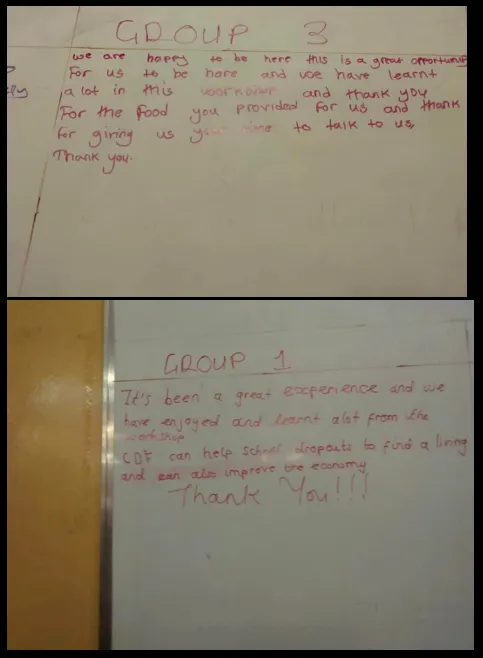 GROUP 3
we are happy to be here this is a great opportunity
For us to be here and we have learnt
a lot in this workshop and thank you
For the food you provided for us and thank
for giving us your time to talk to us,
Thank you.
GROUP 1
It's been a great experience and we
have enjoyed and learnt alot from the
workshop
CDF can help school dropouts to find a living
and can also improve the economy
Thank You!!!